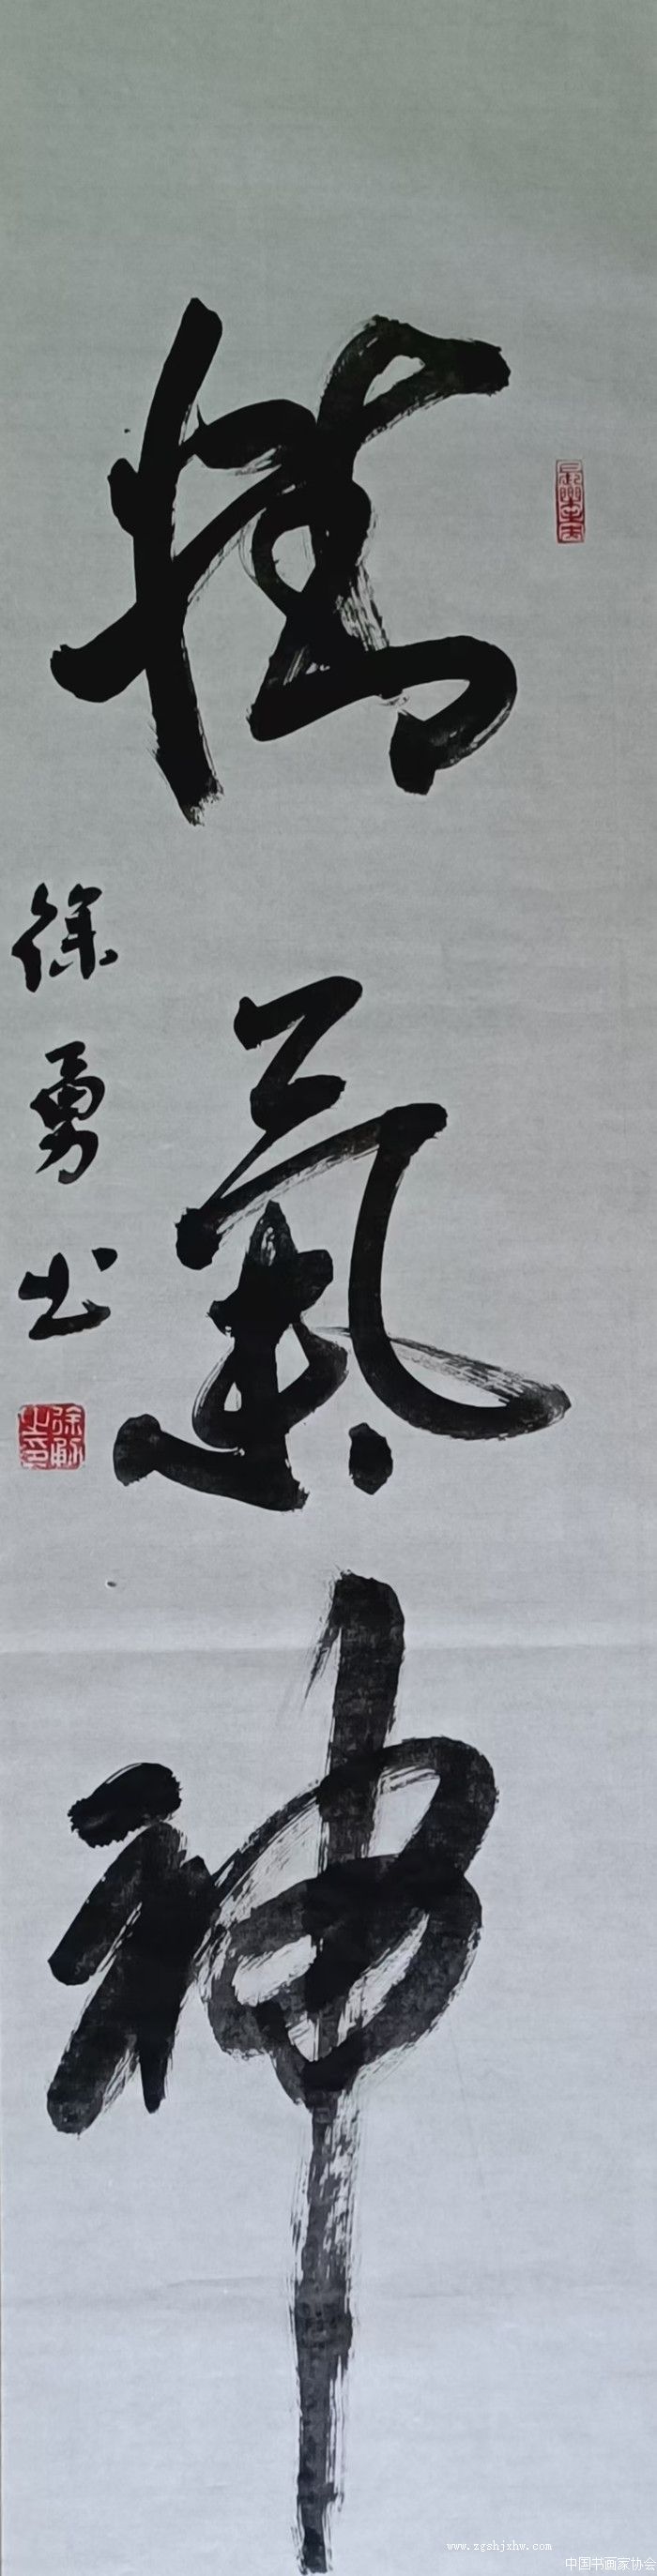 精氣神
徐勇书
徐勇之印
www.zgshjxhw.com
中国书画家协会